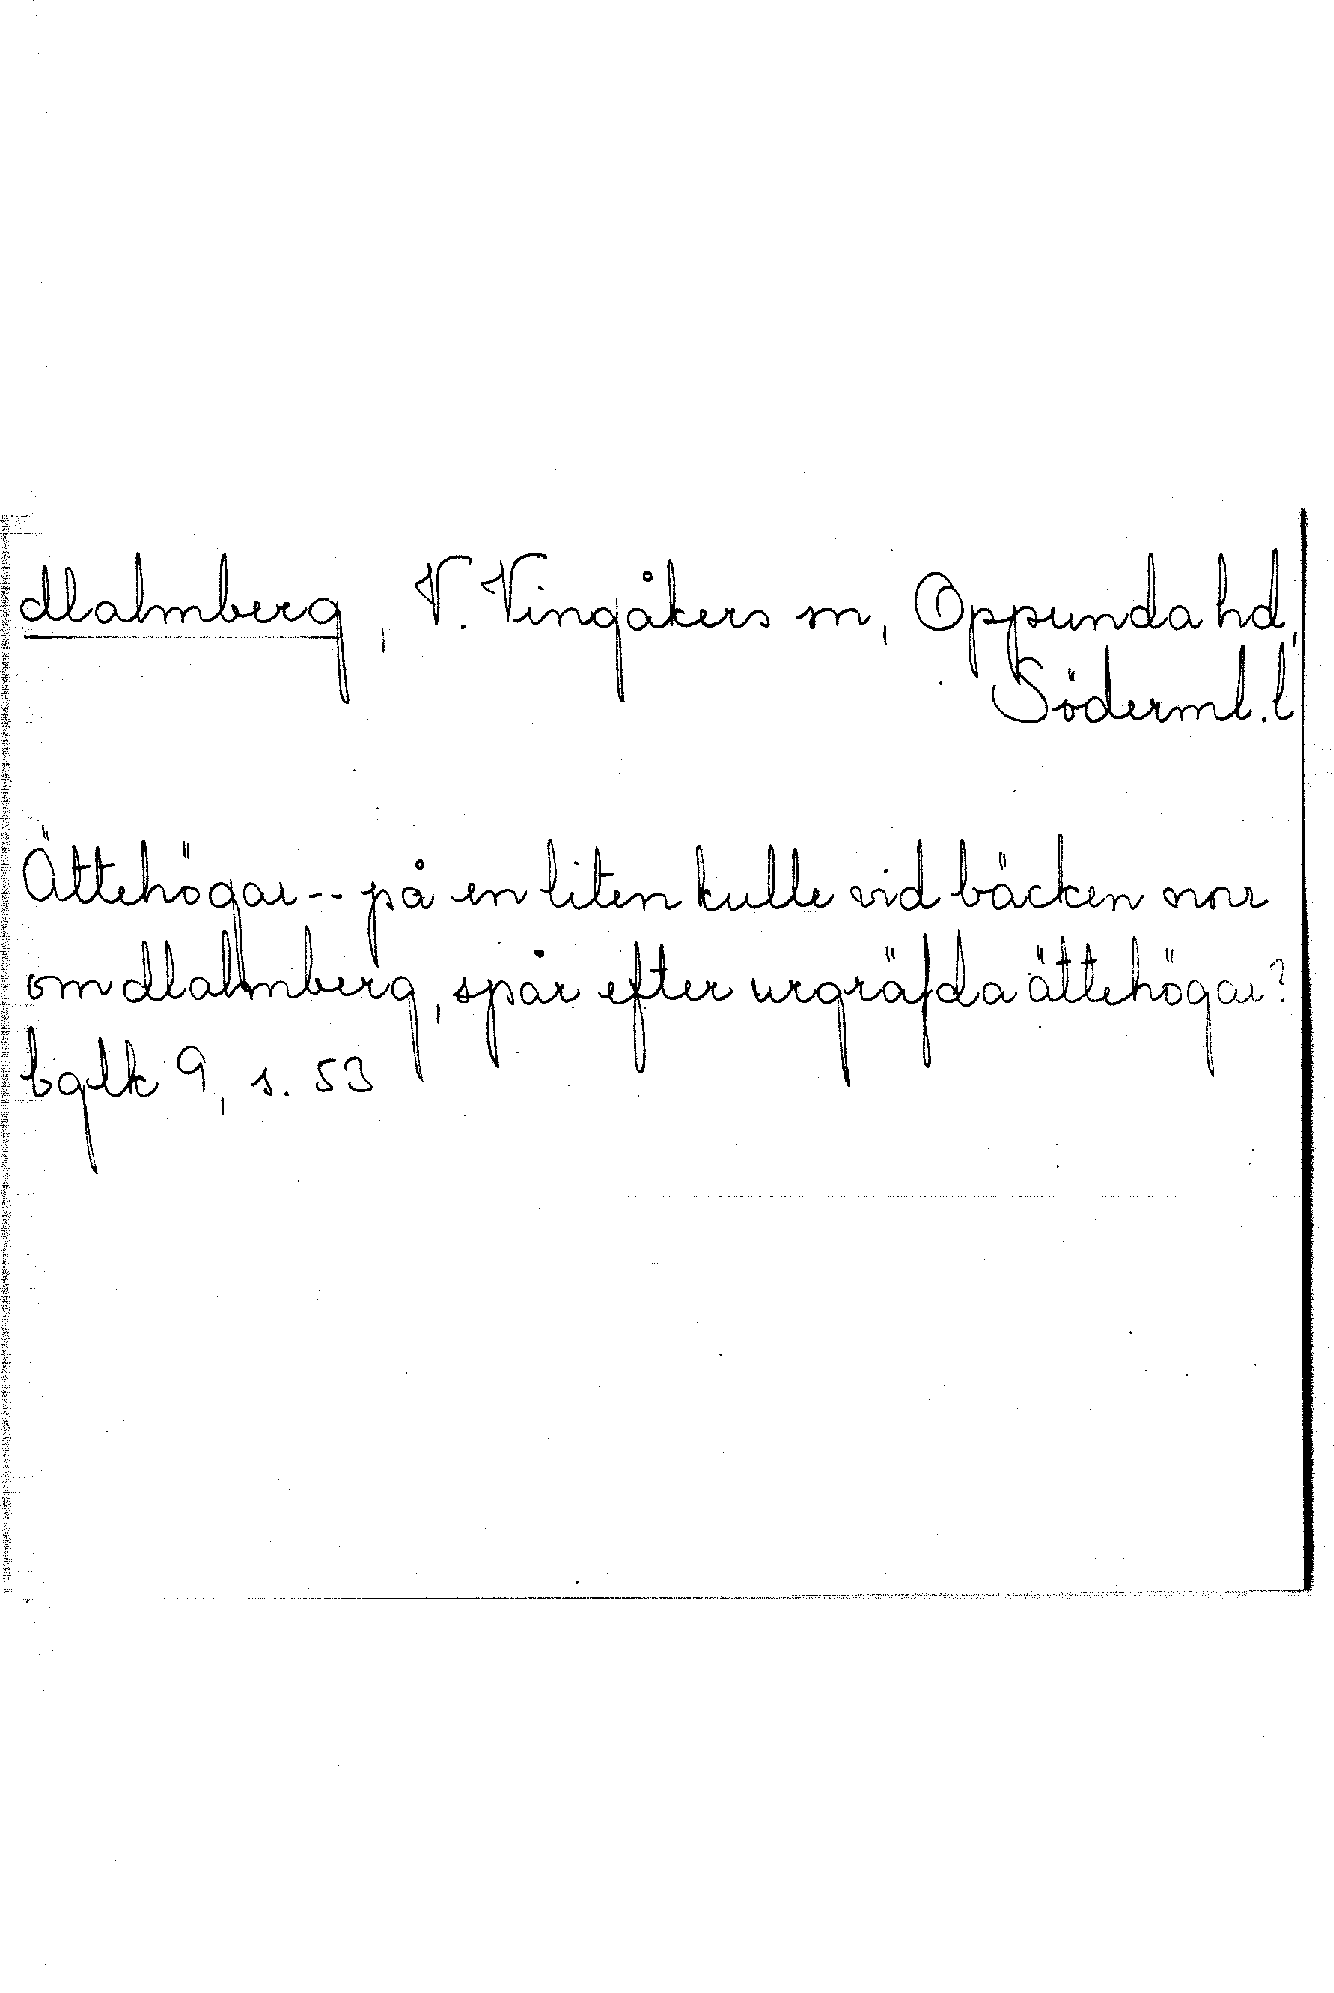 Halmberg, V. Vingåkers sn, Oppunda hd,
Söderml. l
Ättehögar -- på en liten kulle vid bäcken norr
om Halmberg, spår efter urgräfda ättehögar?
bglk 9, s. 53